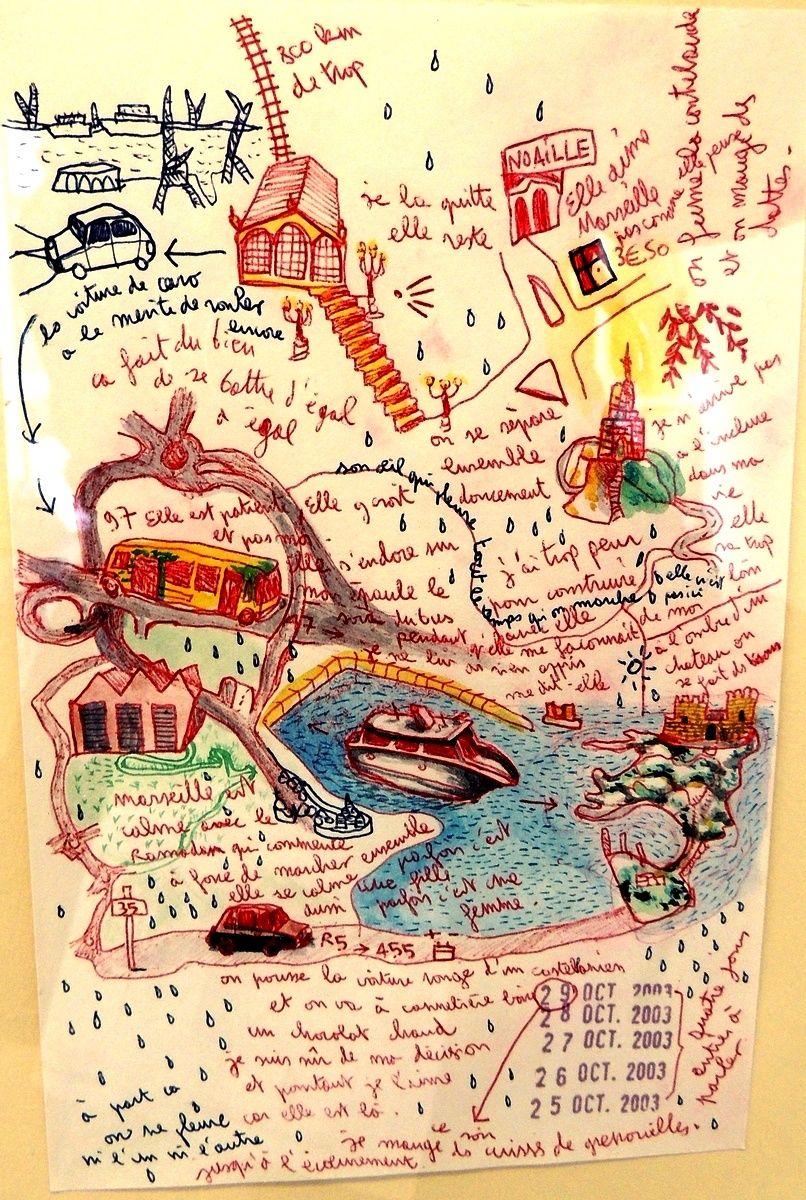 300 km
de trop
NOAILLE
je la quitte
elle reste
Elle aime
Marseille
3€50
on fume
et on mange des
dattes.
la voiture de caro
a le mérite de rouler
encore
ça fait du bien
de se battre d'égal
à égal
on se sépare
ensemble
doucement
je n'arrive pas
à l'inclure
dans ma
vie
elle
va trop
loin
de moi
son œil qui pleure
temps qu on marche
97 Elle est patiente
et pas moi
Elle y croit
elle s'endore sur
mon épaule le
soir du bus
97 →
j'ai trop peur
pour construire
avec elle
pendant qu'elle me façonnait
je ne lui ai rien appris
me dit-elle
à l'ombre d'un
chateau on
se fait des bisous
marseille est
calme avec le
Ramadam qui commence
à force de marcher ensemble
elle se calme
aussi
parfois c'est
une fille
parfois c'est une
femme.
35
R5 → 455
on pousse la voiture rouge d'un castellanien
et on va à cannetière boire
un chocolat chaud
je suis sûr de ma décision
et pourtant je l'aime
car elle est là.
29 OCT. 2003
28 OCT. 2003
27 OCT. 2003
26 OCT. 2003
25 OCT. 2003
quatre jours
entiers à
parler
à part ça
on ne pleure
ni l'un ni l'autre
ce soir
je mange des cuisses de grenouilles.
jusqu'à l'écœurement